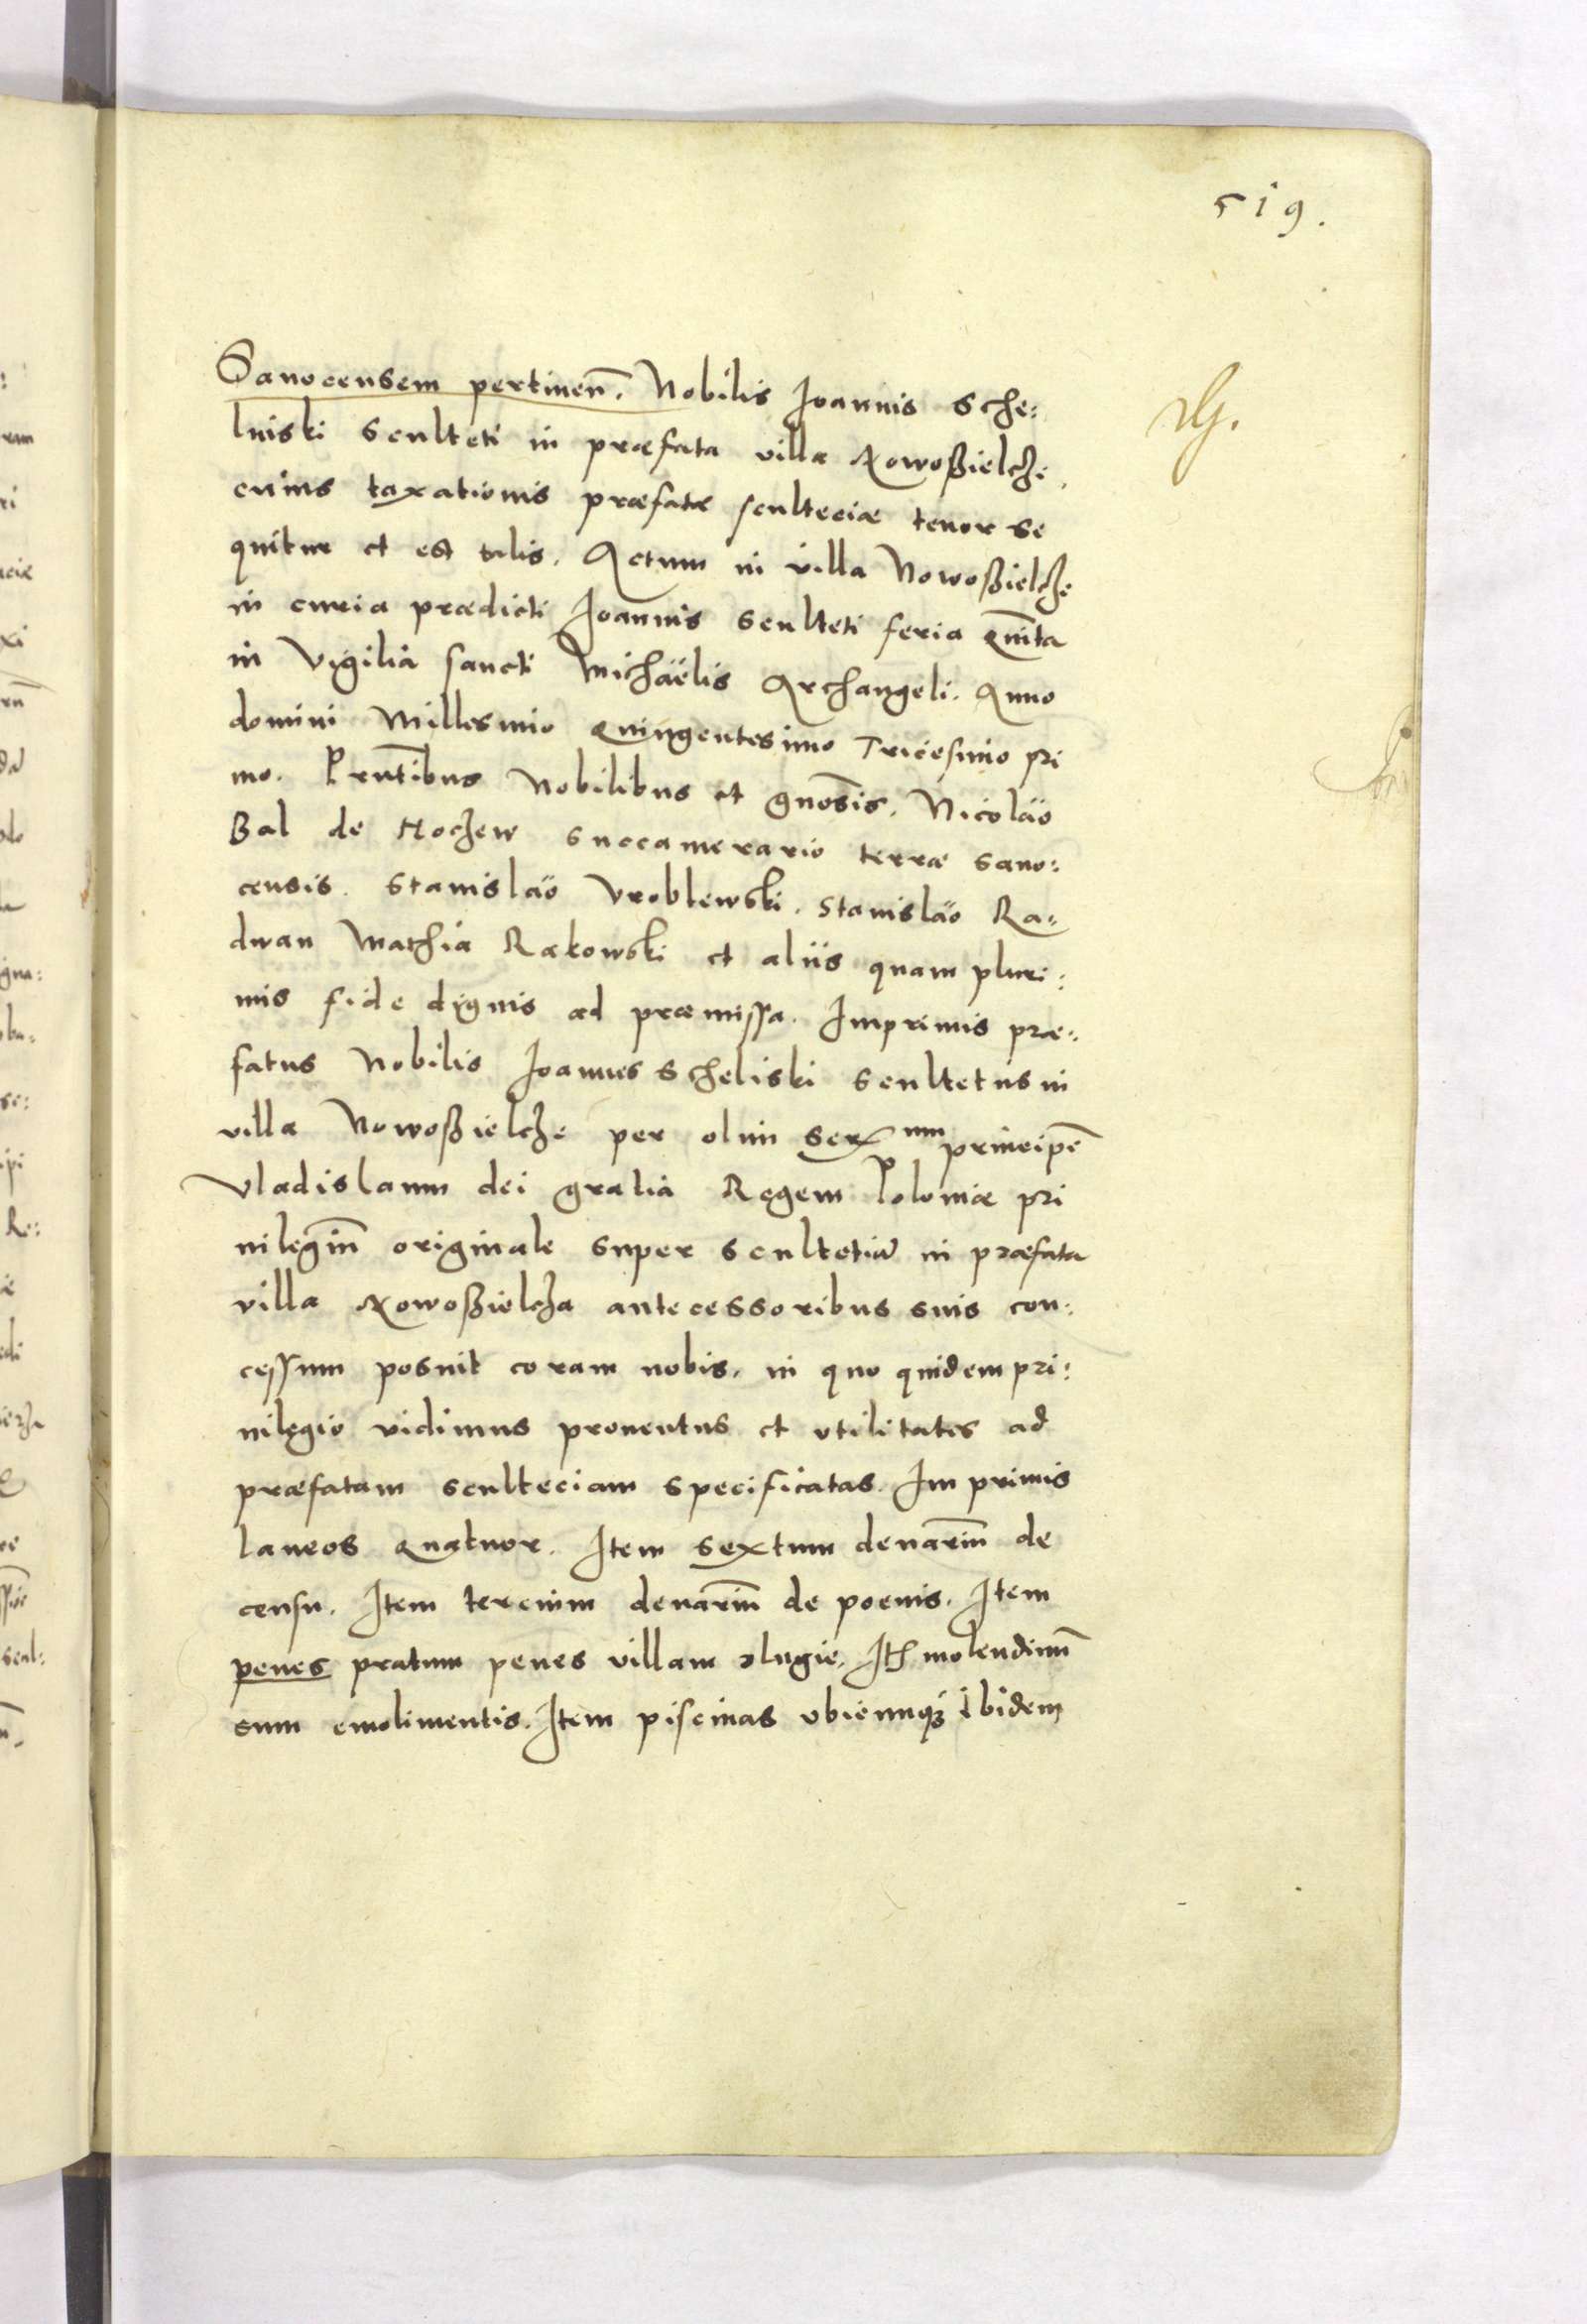 519.
Sanocensem pertinen̄. Nobilis Joannis Sche:
luiski Sculteti in præfata villa Nowoßielcze
cuius taxationis præfatæ sculteciæ tenor se
quitur et est talis. Actum in villa Nowoßielcze
in curia prædicti Joannis Sculteti feria Quīta
in Vigilia sancti Michaëlis Archangeli. Anno
domini Millesimo Quingentesimo Tricesimo pri
mo. Pr̄ntibus Nobilibus et gn̄osis. Nicolao
Bal de Hoczew Succamerario terræ Sano:
censis. Stanislao Vroblewski. Stanislao Ra-
dwan Mathia Rakowski et aliis quam pluri:
mis fide dignis ad præmissa. Imprimis præ:
fatus Nobilis Joannes Scheliski Scultetus in
villa Nowoßielcze per olim Ser^num principē
Vladislaum dei gratia Regem Poloniæ pri
uilegiū originale super Scultetiā in præfata
villa Nowoßielcza antecessoribus suis con:
cessum posuit coram nobis. in quo quidem pri:
uilegio vidimus prouentus et vtilitates ad
præfatam sculteciam specificatas. Im primis
laneos Quatuor. Item Sextum denariū de
censu. Item tercium denariū de poenis. Item
penes pratum penes villam Dlugie. Itē molendinū
cum emolimentis. Item piscinas vbicunqȝ ibidem